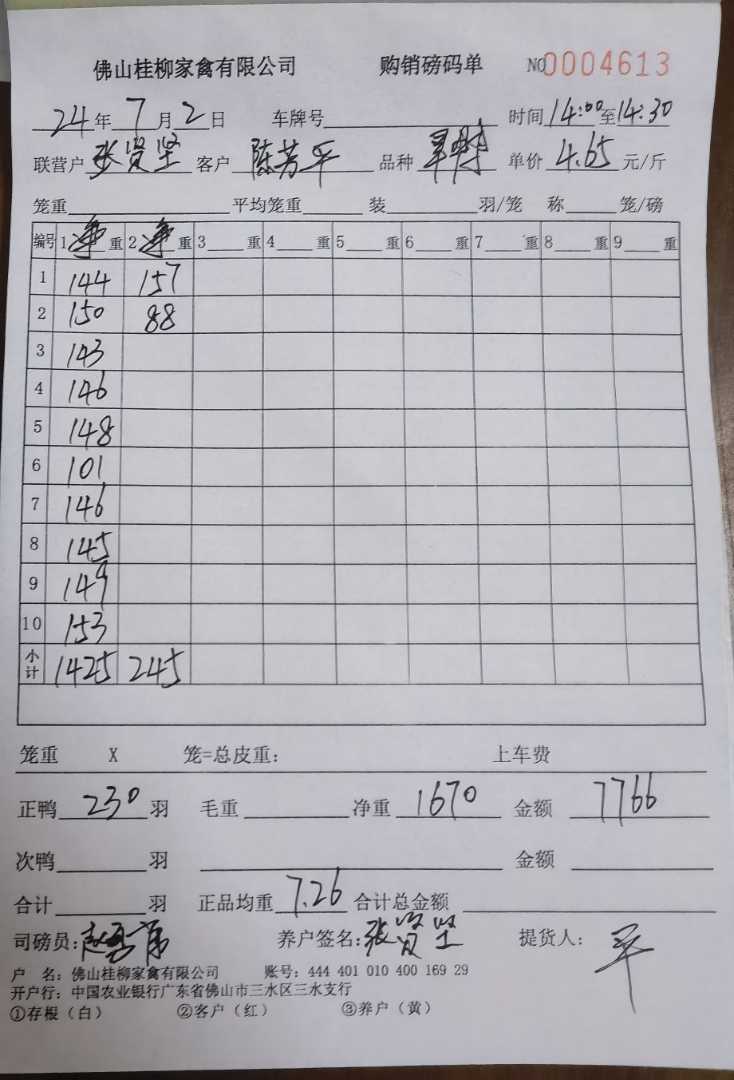 佛山桂柳家禽有限公司 购销磅码单 NO 0004613
24年7月2日 车牌号 时间14:00至14:30
联营户 张贤坚 客户 陈芳平 品种 单价 4.65 元/斤
笼重 平均笼重 装 羽/笼 称 笼/磅
编号 1净重 2净重 3 重 4 重 5 重 6 重 7 重 8 重 9 重
1 144 157
2 150 88
3 143
4 146
5 148
6 101
7 146
8 145
9 149
10 153
小计 1425 245
笼重 X 笼=总皮重: 上车费
正鸭 230 羽 毛重 净重 1670 金额 7766
次鸭 羽 金额
合计 羽 正品均重 7.26 合计总金额
司磅员: 养户签名: 张贤坚 提货人: 平
户 名: 佛山桂柳家禽有限公司 账号: 444 401 010 400 169 29
开户行: 中国农业银行广东省佛山市三水区三水支行
①存根（白） ②客户（红） ③养户（黄）